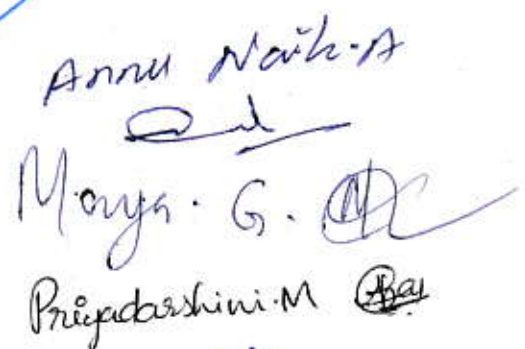 Annu Naik.A
Mouya. G.
Priyadarshini.M